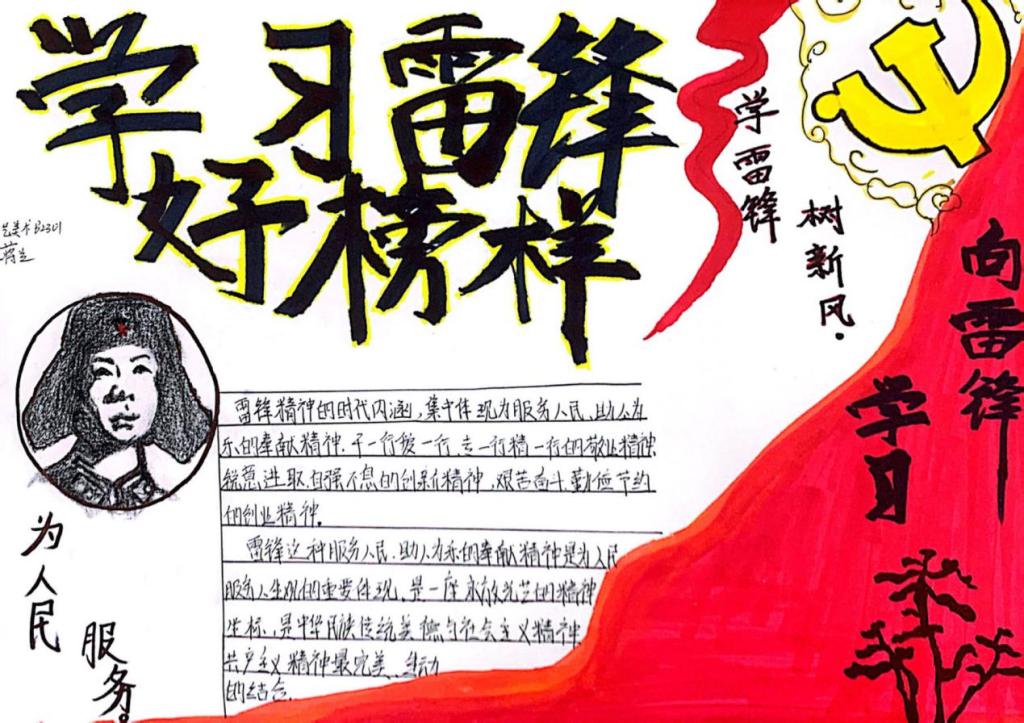 学习雷锋
好榜样
学雷锋
树新风.
向雷锋
学习
艺美术B2301
蒋兰
雷锋精神的时代内涵，集中体现为服务人民、助人为
乐的奉献精神.干一行爱一行、专一行精一行的敬业精神.
锐意进取自强不息的创新精神，艰苦奋斗勤俭节约
的创业精神.
雷锋这种服务人民、助人为乐的奉献精神是为人民
服务人生观的重要体现，是一座永放光芒的精神
坐标，是中华民族传统美德与社会主义精神
共产主义精神最完美、生动
的结合.
为人民
服务.